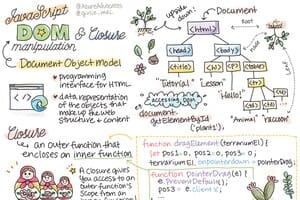 JavaScript
DOM & Closure
manipulation
@AzureAdvocates
@girlie_mac
Document Object Model
programming
interface for HTML
data representation
of the objects that
make up the web
structure + content
upside
down!
Document
Root
<html>
<head>
<body>
<title>
"Tutorial"
"Lesson"
"Hello!"
"Animal"
"raccoon"
Accessing DOM
document.
getElementById
('plants');
Closure
an outer function that
encloses an inner function
A closure gives
you access to an
outer function's
scope from an
function dragElement(terrariumEl) {
let pos1=0, pos2=0, pos3=0,
terrariumEl.onpointerdown = pointerDrag;
function pointerDrag(e) {
e.preventDefault();
pos3 = e.clientX;